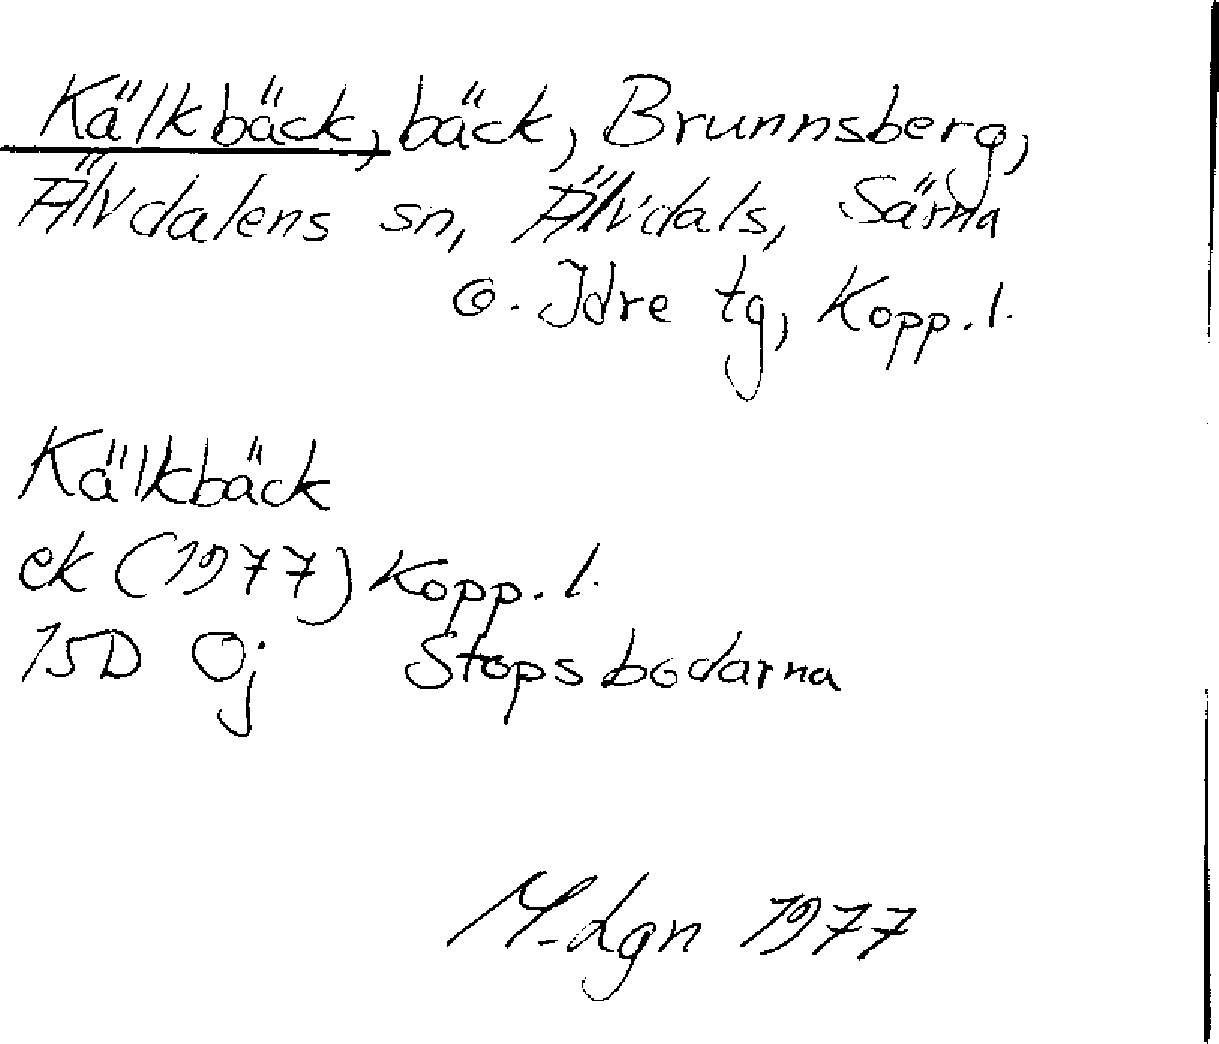 Kälkbäck, bäck, Brunnsberg,
Älvdalens sn, Älvdals, Särna
o. Idre tg, Kopp. l.
Kälkbäck
ek (1977) Kopp. l.
15D 0j Stopsbodarna
M-Lgn 1977